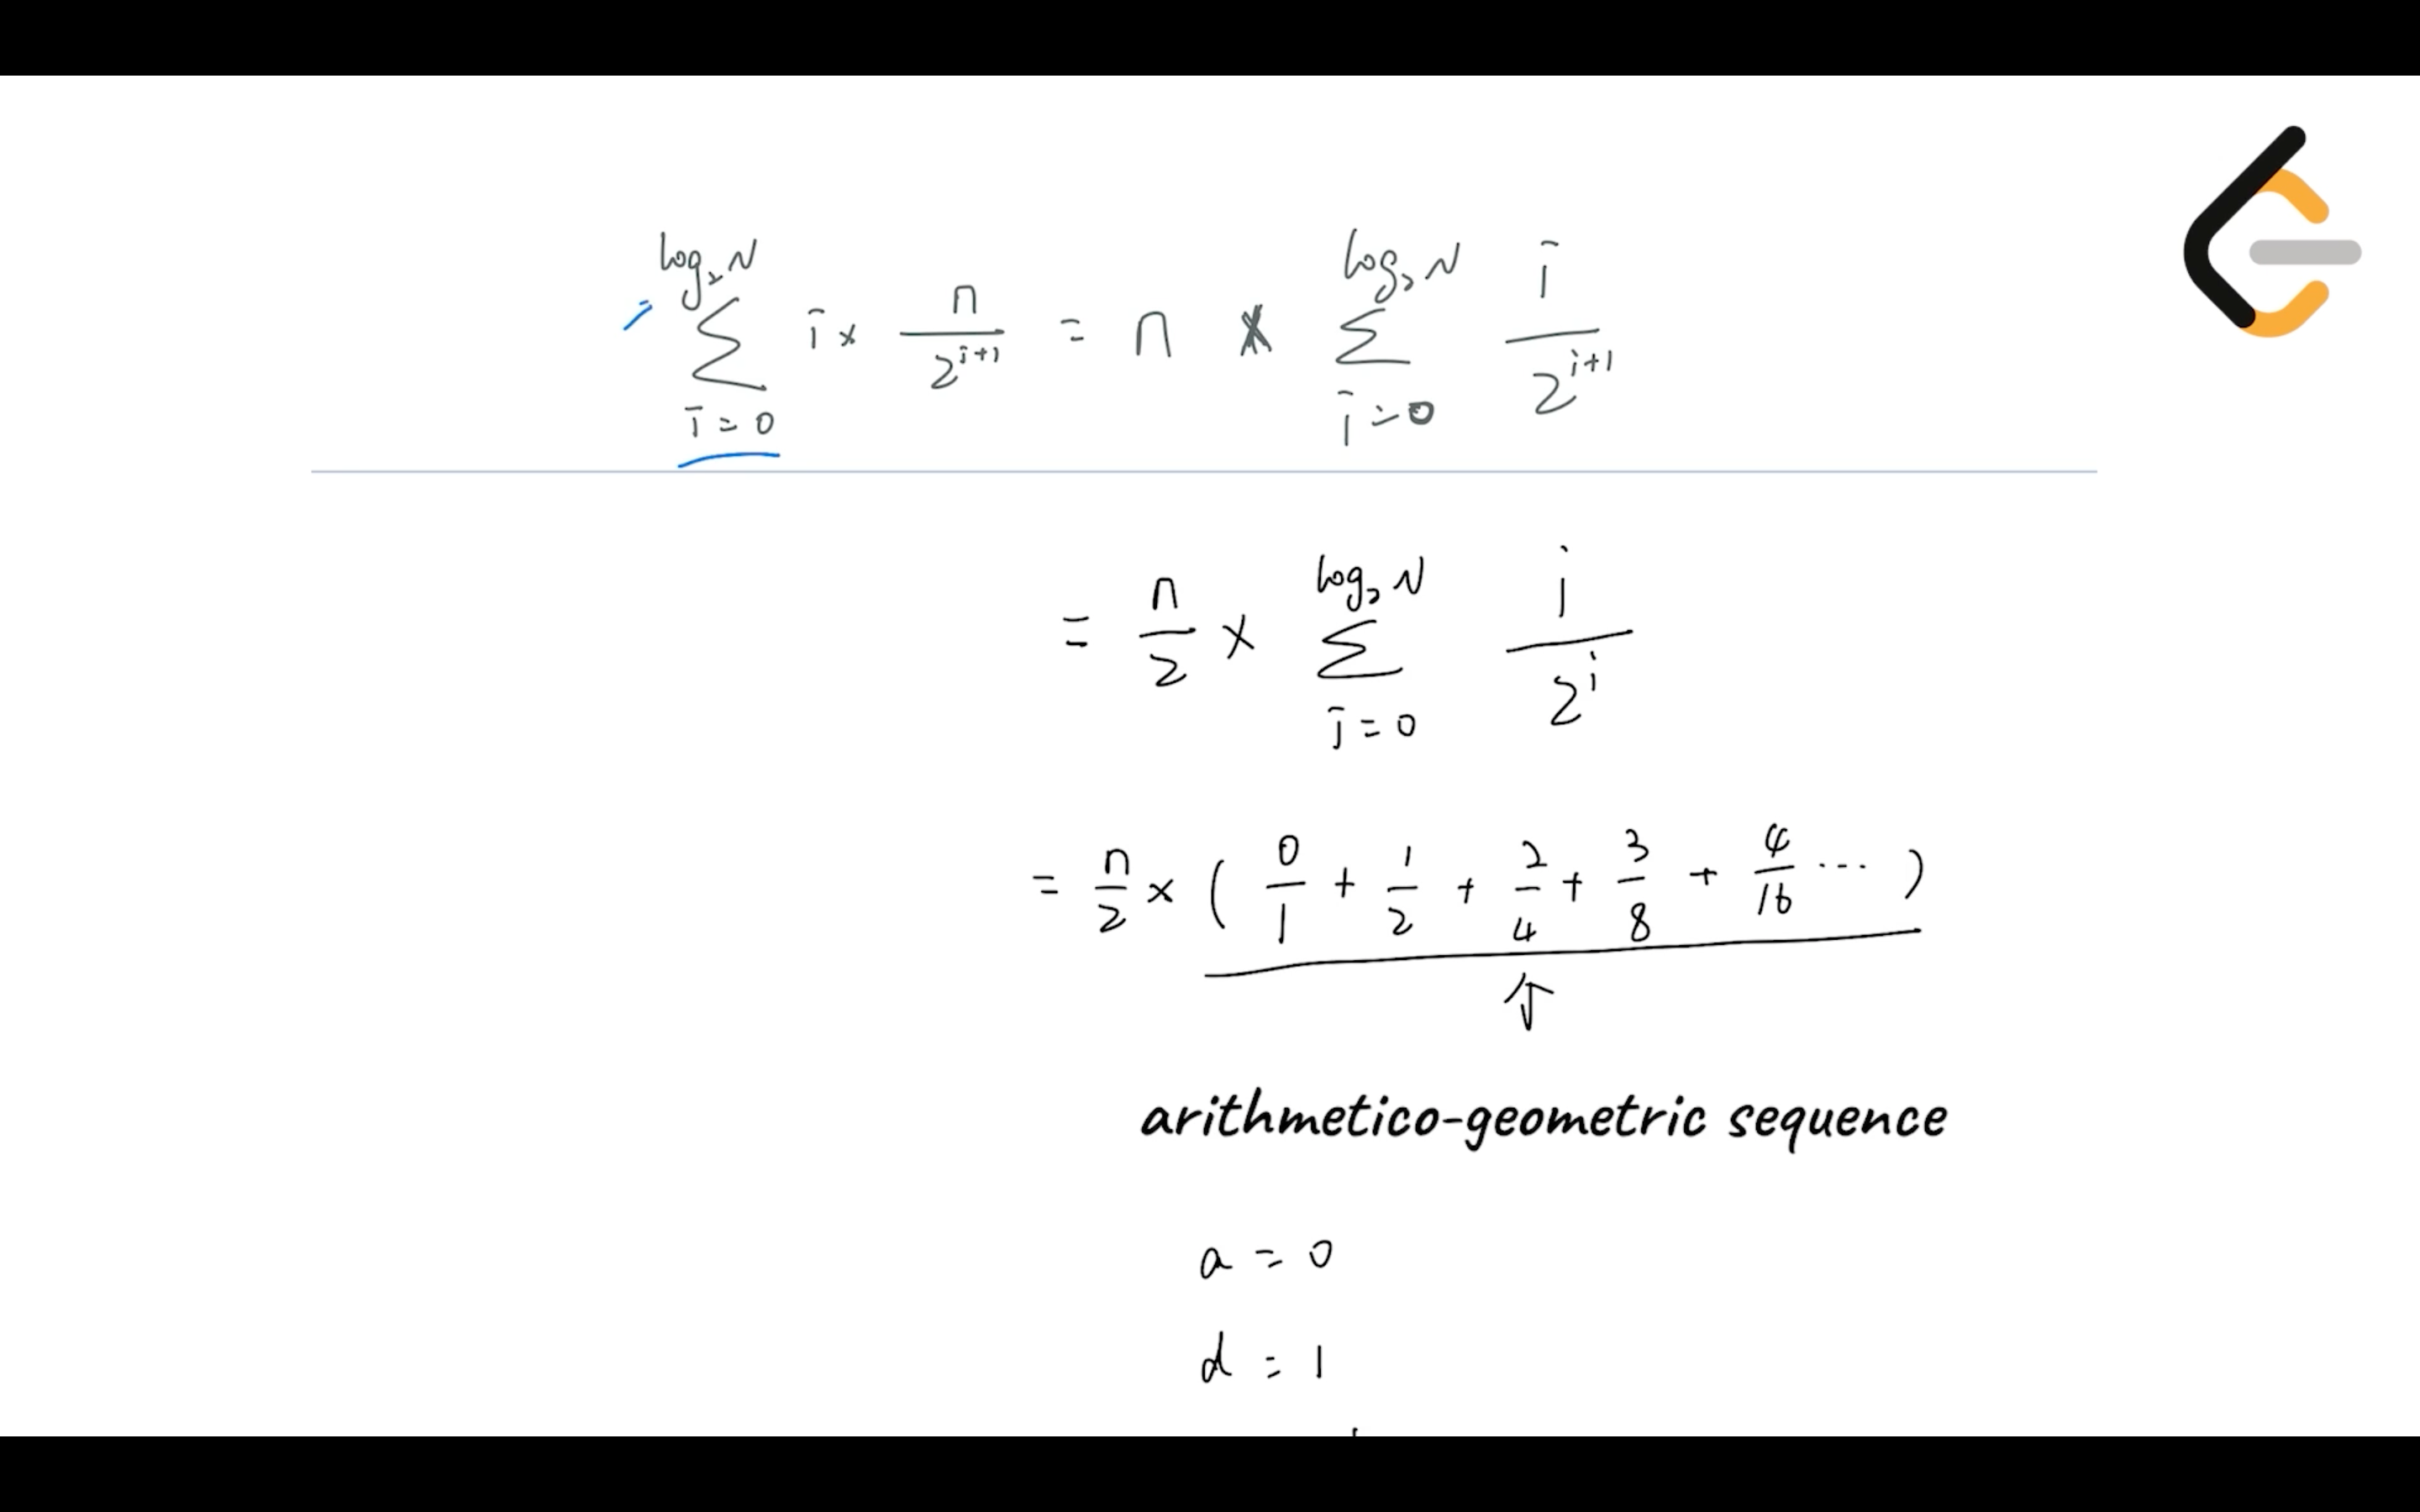 = \sum_{i=0}^{log_2 N} i × \frac{n}{2^{i+1}} = n × \sum_{i=0}^{log_2 N} \frac{i}{2^{i+1}}
= \frac{n}{2} × \sum_{i=0}^{log_2 N} \frac{i}{2^i}
= \frac{n}{2} × ( \frac{0}{1} + \frac{1}{2} + \frac{2}{4} + \frac{3}{8} + \frac{4}{16} ... )
↑
arithmetico-geometric sequence
a = 0
d = 1